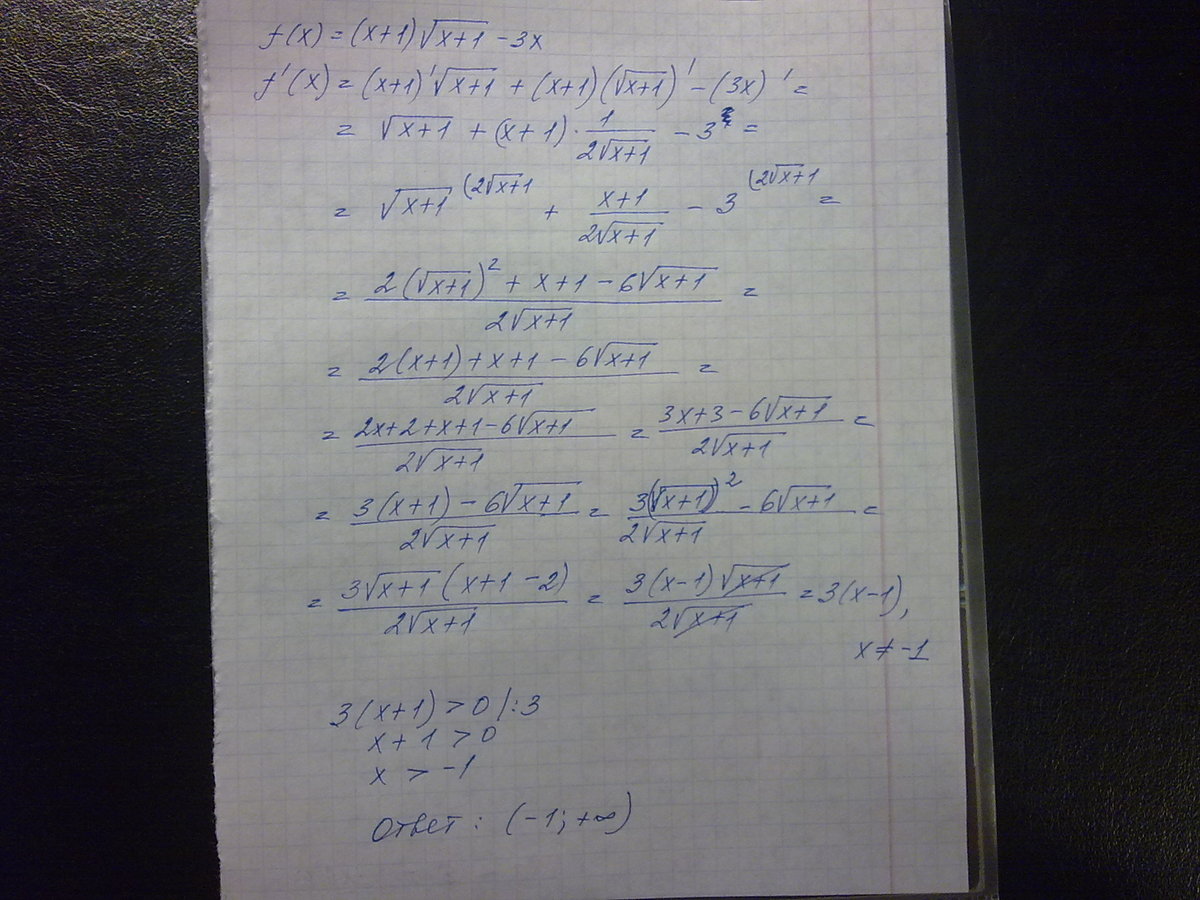 f(x) = (x+1)√(x+1) - 3x
f'(x) = (x+1)'√(x+1) + (x+1)(√(x+1))' - (3x)' =
= √(x+1) + (x+1) · 1/(2√(x+1)) - 3 =
= √(x+1) (2√(x+1) + (x+1)/(2√(x+1)) - 3 (2√(x+1) =
= (2(√(x+1))² + x+1 - 6√(x+1))/(2√(x+1)) =
= (2(x+1) + x+1 - 6√(x+1))/(2√(x+1)) =
= (2x+2+x+1-6√(x+1))/(2√(x+1)) = (3x+3-6√(x+1))/(2√(x+1)) =
= (3(x+1) - 6√(x+1))/(2√(x+1)) = (3(√(x+1))² - 6√(x+1))/(2√(x+1)) =
= (3√(x+1)(x+1-2))/(2√(x+1)) = (3(x-1)√(x+1))/(2√(x+1)) = 3(x-1),
x ≠ -1
3(x+1) > 0 |:3
x + 1 > 0
x > -1
Ответ: (-1; +∞)